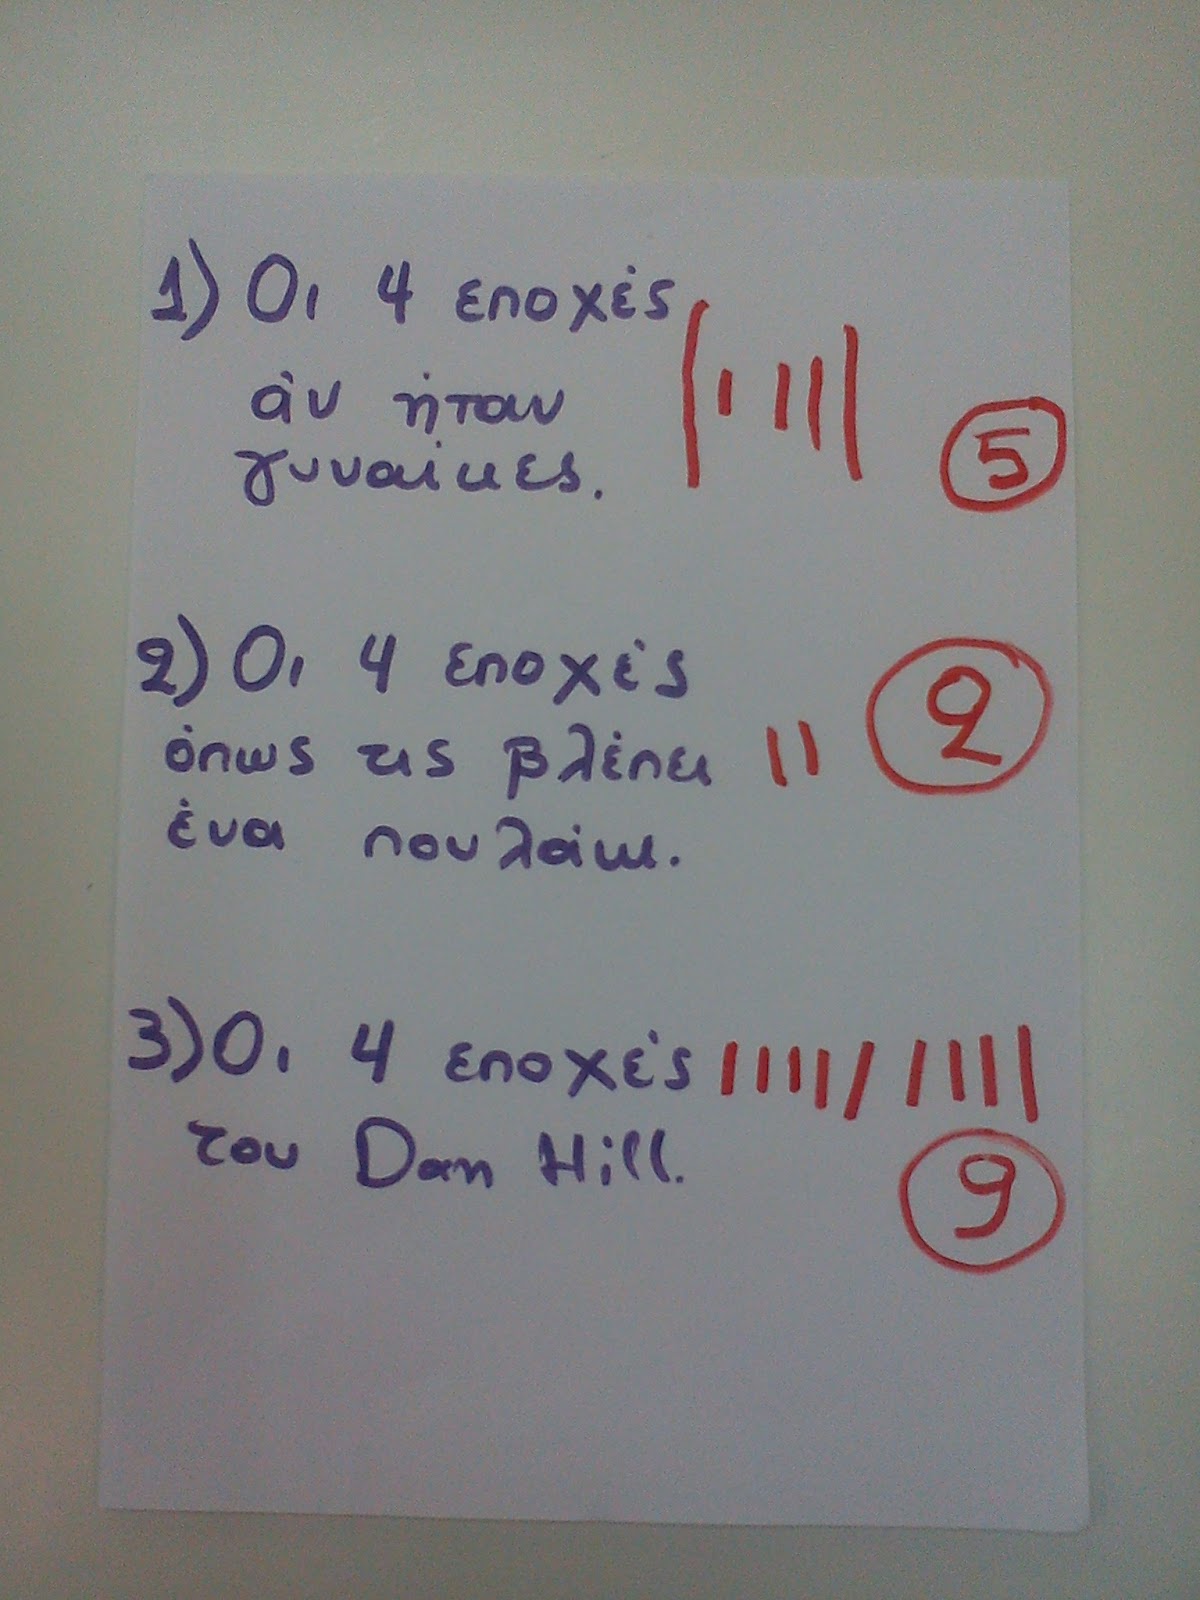 1) Οι 4 εποχές
άν ήταν
γυναίκες.
5
2) Οι 4 εποχές
όπως τις βλέπει
ένα πουλάκι.
2
3) Οι 4 εποχές
του Dan Hill.
9